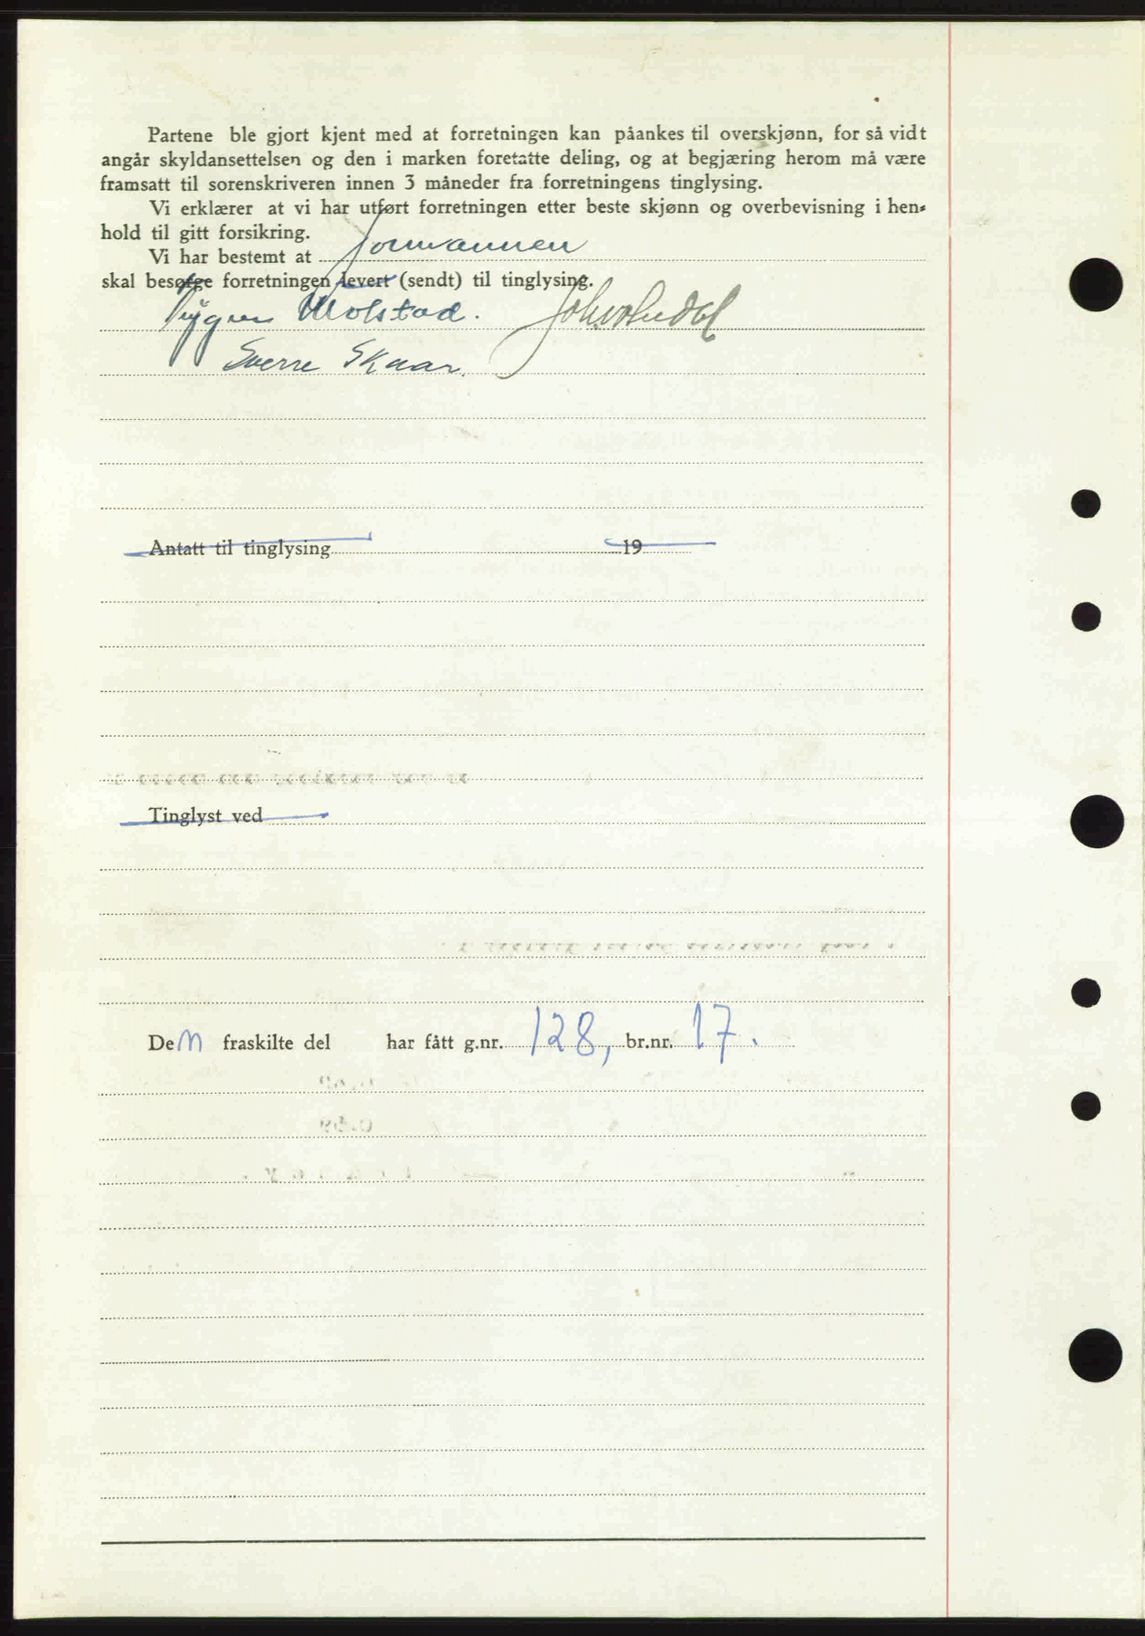 Partene ble gjort kjent med at forretningen kan påankes til overskjønn, for så vidt
angår skyldansettelsen og den i marken foretatte deling, og at begjæring herom må være
framsatt til sorenskriveren innen 3 måneder fra forretningens tinglysing.
Vi erklærer at vi har utført forretningen etter beste skjønn og overbevisning i hen-
hold til gitt forsikring.
Vi har bestemt at formannen
skal besørge forretningen levert (sendt) til tinglysing.
Molstad.
Sverre Skaar.
Antatt til tinglysing 19
Tinglyst ved
Den fraskilte del har fått g.nr. 128, br.nr. 17.